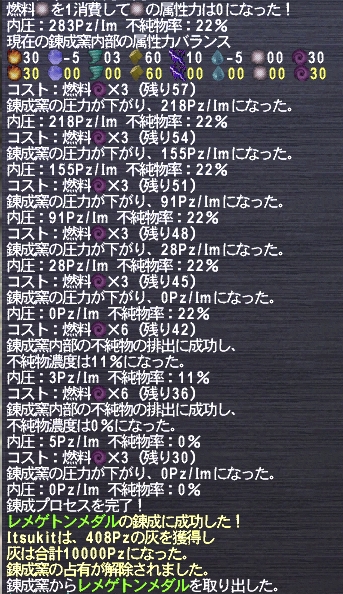 燃料を1消費しての属性力は0になった！
内圧：283Pz/Im 不純物率：22％
現在の錬成窯内部の属性力バランス
30 -5 03 60 10 -5 00 30
30 00 00 60 00 00 00 30
コスト：燃料×3（残り57）
錬成窯の圧力が下がり、218Pz/Imになった。
内圧：218Pz/Im 不純物率：22％
コスト：燃料×3（残り54）
錬成窯の圧力が下がり、155Pz/Imになった。
内圧：155Pz/Im 不純物率：22％
コスト：燃料×3（残り51）
錬成窯の圧力が下がり、91Pz/Imになった。
内圧：91Pz/Im 不純物率：22％
コスト：燃料×3（残り48）
錬成窯の圧力が下がり、28Pz/Imになった。
内圧：28Pz/Im 不純物率：22％
コスト：燃料×3（残り45）
錬成窯の圧力が下がり、0Pz/Imになった。
内圧：0Pz/Im 不純物率：22％
コスト：燃料×6（残り42）
錬成窯内部の不純物の排出に成功し、
不純物濃度は11％になった。
内圧：3Pz/Im 不純物率：11％
コスト：燃料×6（残り36）
錬成窯内部の不純物の排出に成功し、
不純物濃度は0％になった。
内圧：5Pz/Im 不純物率：0％
コスト：燃料×3（残り30）
錬成窯の圧力が下がり、0Pz/Imになった。
内圧：0Pz/Im 不純物率：0％
錬成プロセスを完了！
レメゲトンメダルの錬成に成功した！
Itsukitは、408Pzの灰を獲得し
灰は合計10000Pzになった。
錬成窯の占有が解除されました。
錬成窯からレメゲトンメダルを取り出した。